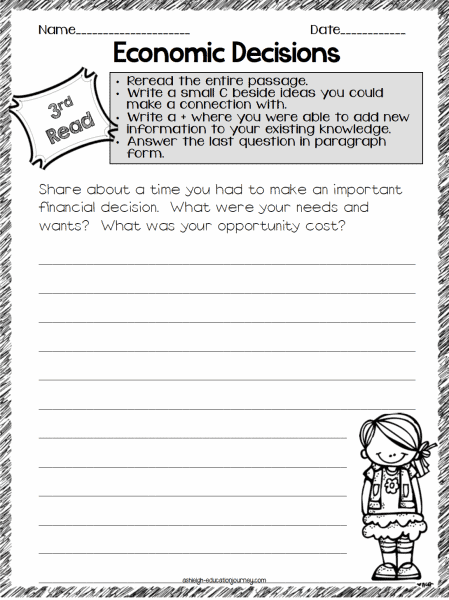 Name____________________ Date____________
Economic Decisions
3rd
Read
• Reread the entire passage.
• Write a small C beside ideas you could
make a connection with.
• Write a + where you were able to add new
information to your existing knowledge.
• Answer the last question in paragraph
form.
Share about a time you had to make an important
financial decision. What were your needs and
wants? What was your opportunity cost?
ashleigh-educationjourney.com